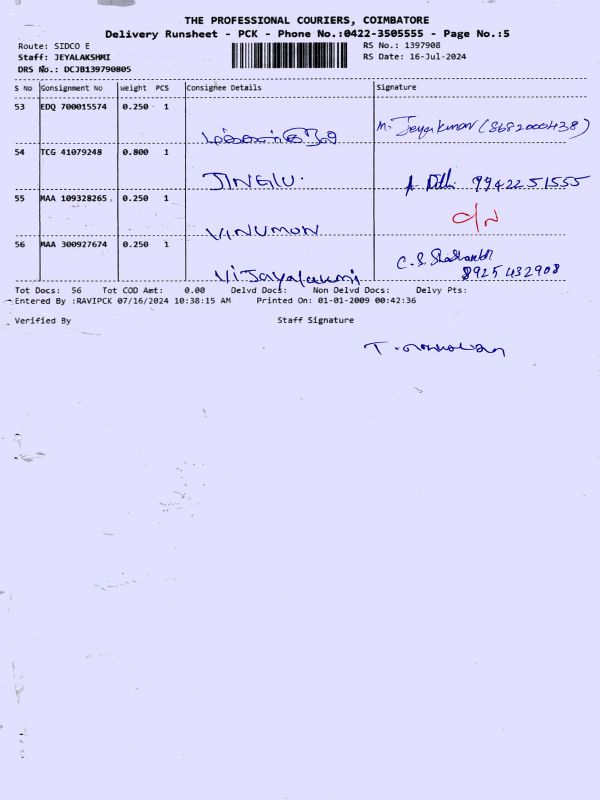 THE PROFESSIONAL COURIERS, COIMBATORE
Delivery Runsheet - PCK - Phone No.:0422-3505555 - Page No.:5
Route: SIDCO E
Staff: JEYALAKSHMI
DRS No.: DCJB139790805
RS No.: 1397908
RS Date: 16-Jul-2024
S No Consignment No Weight PCS Consignee Details Signature
53 EDQ 700015574 0.250 1
M. Jeyakumar (8682000438)
54 TCG 41079248 0.800 1
JINGLU. 9942251555
55 MAA 109328265 0.250 1
VINUMON O/N
56 MAA 300927674 0.250 1
Vijayalakmi C.S. 8925432908
Tot Docs: 56 Tot COD Amt: 0.00 Delvd Docs: Non Delvd Docs: Delvy Pts:
Entered By :RAVIPCK 07/16/2024 10:38:15 AM Printed On: 01-01-2009 00:42:36
Verified By Staff Signature
T.